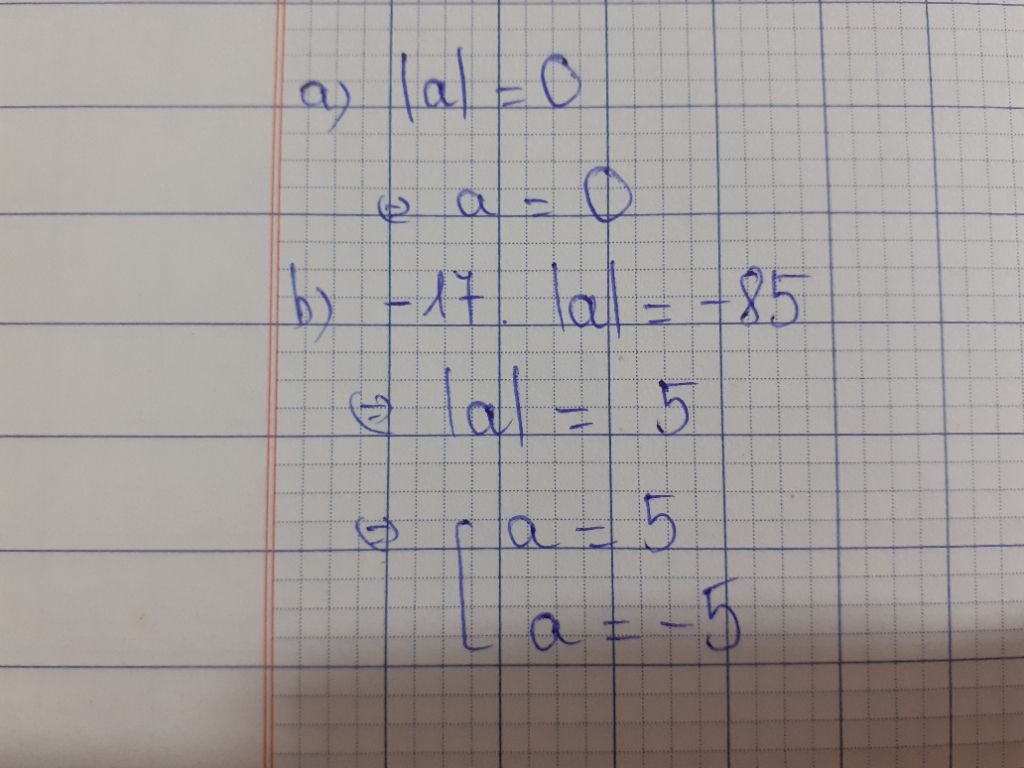 a) |a| = 0
⇔ a = 0
b) -17. |a| = -85
⇔ |a| = 5
⇔ [ a = 5
a = -5